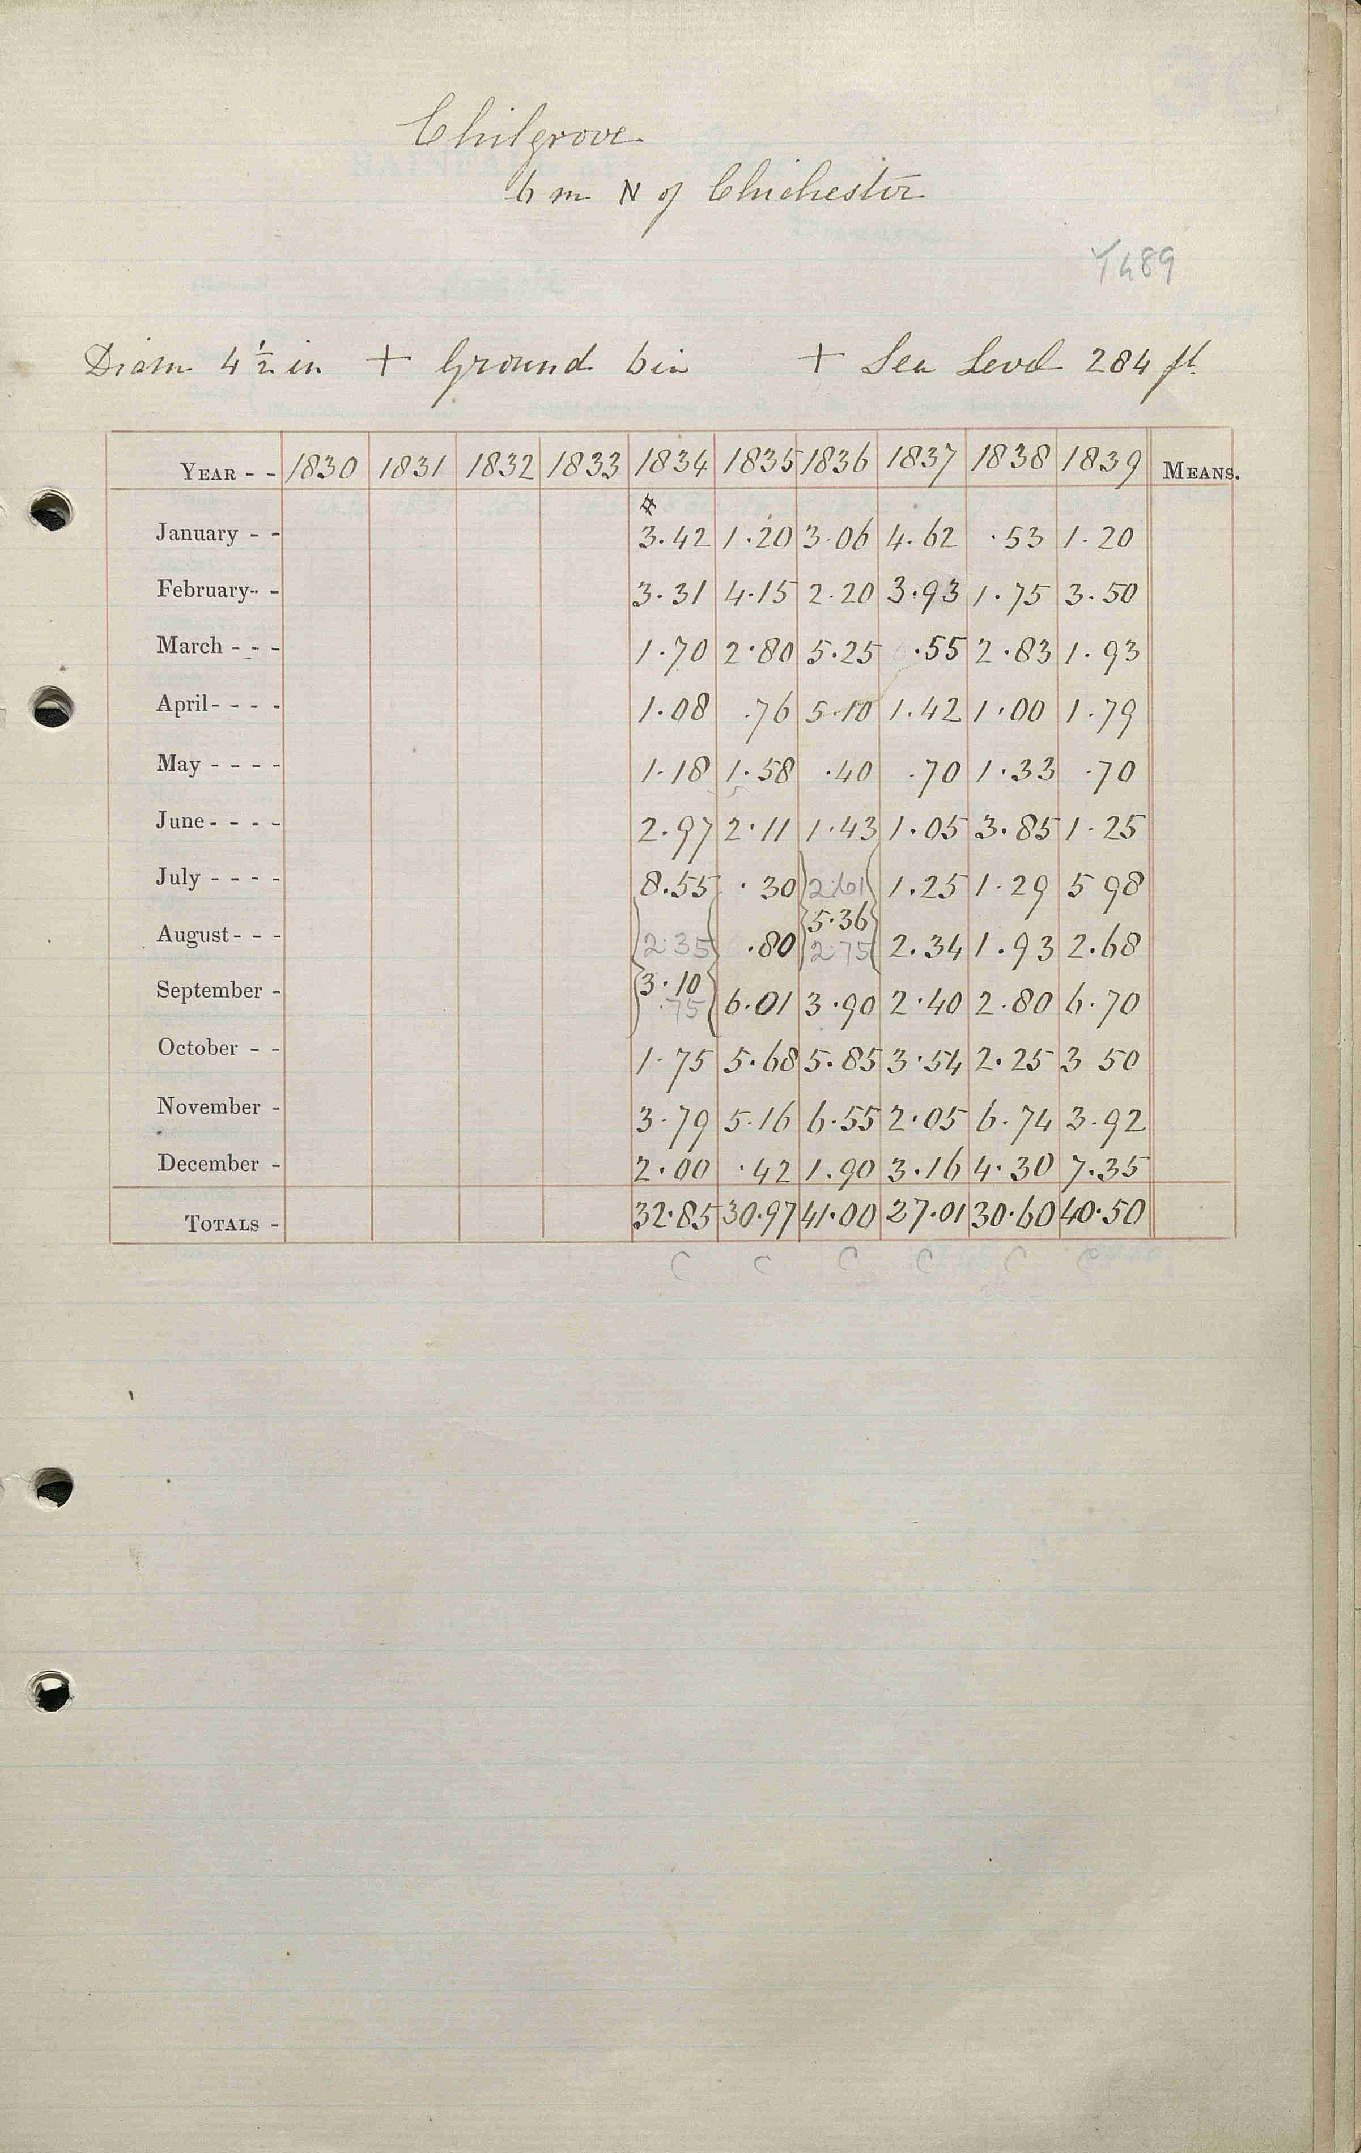 Chilgrove
6 m N of Chichester
Diam 4½ in + Ground 6 in + Sea Level 284 ft
YEAR - - 1830 1831 1832 1833 1834 1835 1836 1837 1838 1839 MEANS.
January - - 3.42 1.20 3.06 4.62 .53 1.20
February - - 3.31 4.15 2.20 3.93 1.75 3.50
March - - - 1.70 2.80 5.25 .55 2.83 1.93
April - - - - 1.08 .76 5.10 1.42 1.00 1.79
May - - - - 1.18 1.58 .40 .70 1.33 .70
June - - - - 2.97 2.11 1.43 1.05 3.85 1.25
July - - - - 8.55 .30 2.61 1.25 1.29 5 98
5.36
August - - - 2.35 .80 2.75 2.34 1.93 2.68
3.10
September - .75 6.01 3.90 2.40 2.80 6.70
October - - 1.75 5.68 5.85 3.54 2.25 3 50
November - 3.79 5.16 6.55 2.05 6.74 3.92
December - 2.00 .42 1.90 3.16 4.30 7.35
TOTALS - 32.85 30.97 41.00 27.01 30.60 40.50
C C C C C C